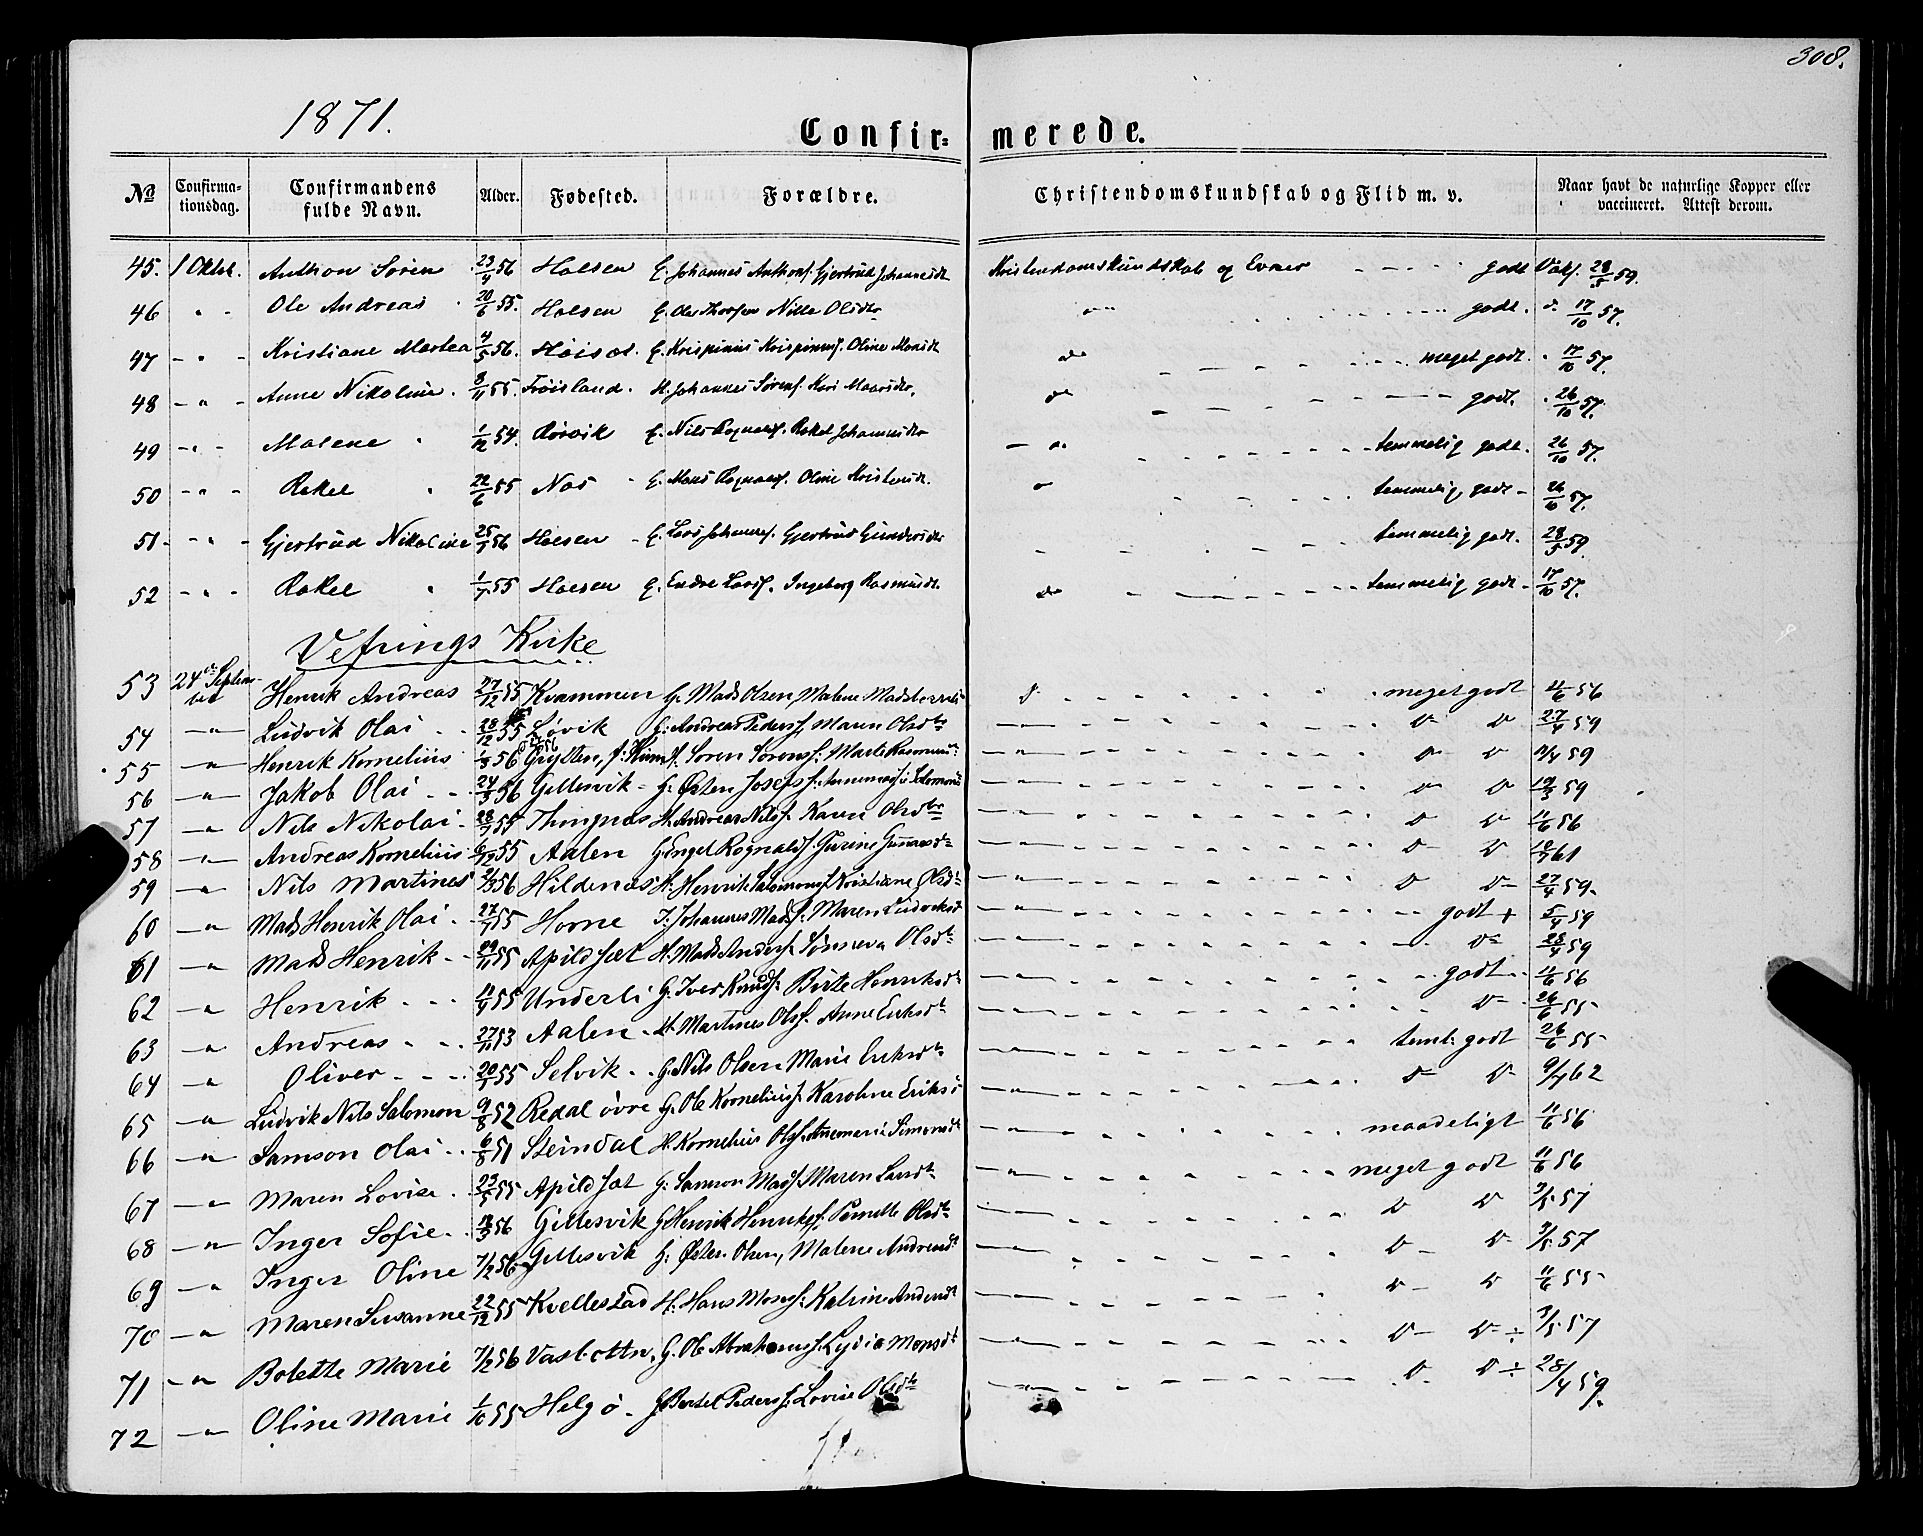 308.
1871.
Confir- merede.
No Confirma-tionsdag. Confirmandens fulde Navn. Alder. Fødested. Forældre. Christendomskundskab og Flid m. v. Naar havt de naturlige Kopper eller vaccineret. Attest derom.
45. 1 Oktbr. Anthon Søren 23/4 56 Holsen G. Johannes Anthonss. Gjertrud Johannesdt. Kristendomskundskab og Evner - - - - godt Vaks. 28/5 59.
46 " - Ole Andreas 20/6 55. Holsen G. Ole Nille Olsdtr godt. 17/10 57.
47 - " - Kristiane Martea 4/5 56. G. Krispinus Krispinuss. Oline Monsdt do meget godt. 17/10 57.
48 - " - Anne Nikoline 8/11 55. Frøisland. H. Johannes Sørens. Kari do godt. 26/10 57.
49 - " - Malene 1/12 54. Rørvik G. Nils Rognalds. Rakel Johannesdtr - " temmelig godt. 26/10 57.
50 - " - Rakel 22/6 55 Nas G. Mons Rognalds. Oline Kristensdt. temmelig godt - 26/10 57.
51 - " - Gjertrud Nikoline 25/1 56 Holsen - G. Lars Johanness. Gjertrud Gundersdtr temmelig godt. 28/5 59.
52 - " - Rakel 1/7 55 Holsen G. Endre Larss. Ingeborg Rasmusdt. do temmelig godt - 17/10 57.
Vefrings Kirke
53 24de Septem-ber Henrik Andreas 27/12 55 Kvammen G. Mads Olsen, Malene meget godt 11/6 56
54 —"— Ludvik Olai 28/12 55 Løvik G. Andreas Peders. Maren Olsdtr —"— D D 27/4 59
55 —"— Henrik Kornelius 1/8 56 Grytten, G. Søren Sørens. Marte Rasmusd. —"— D D 11/4 59
56 —"— Jakob Olai 24/3 56 Gellesvik - G. Østen Josefs. Annemarie Salomonsd —"— D D 19/3 59
57 —"— Nils Nikolai 28/7 55 Thingnes H. Andreas Nilss. Karen Olsdtr —"— D D 11/6 56
58 —"— Andreas Kornelius 6/12 55 Aalen G. Engel Rognalds. —"— D D 18/7 61
59 —"— Nils Martines 2/3 56 Hildenes H. Henrik Salomons. Kristiane Olsdtr —"— D D 27/4 59.
60 —"— Mads Henrik Olai 27/7 55 Horne J. Johannes Mads. Maren Ludviksd —"— godt + 5/4 59
61 —"— Mads Henrik 29/11 55 Apildsæt H. Mads Anders. Sønneva Olsdtr —"— D 28/4 59
62 —"— Henrik 11/9 55 Underli G. Iver Knuds. Birte Henriksdtr —"— godt 11/6 56
63 —"— Andreas 27/11 53 Aalen H. Martines Olss. Anne Eriksdtr —"— D 26/6 55
64 —"— Oliver 20/1 55 Selvik G. Nils Olsen Marie Eriksdtr —"— teml. godt 26/6 55
65 —"— Ludvik Nils Salomon 9/8 52 Redal øvre G. Ole Korneliuss. Karoline Eriksd —"— D D 9/7 62
66 —"— Samson Olai 6/8 51 Steindal H. Kornelius Olss. Annemarie Simonsdt —"— maadeligt 11/6 56
67 —"— Maren Lovise 23/5 55 Apildsæt G. Samson Mads. Maren Larsdtr —"— meget godt 11/6 56
68 —"— Inger Sofie 18/3 56 Gellesvik G. Henrik Henriks. Pernelle Olsdtr —"— D D 3/5 57
69 —"— Inger Oline 7/2 56 Gellesvik G. Østen Olsen, Malene Andersdt —"— D D 3/5 57
70 —"— Maren Susanne 22/12 55 Kvellestad H. Hans Monss. Katrine Andersdt —"— D D 11/6 55
71 —"— Bolette Marie 7/2 56 Vasbottn. G. Ole Abrahams. Lydia Monsdt —"— D D ÷ 3/5 57
72 —"— Oline Marie 1/10 55 Helgø - G. Bertel Peders. Lovise Olsdtr —"— D D ÷ 28/4 59.